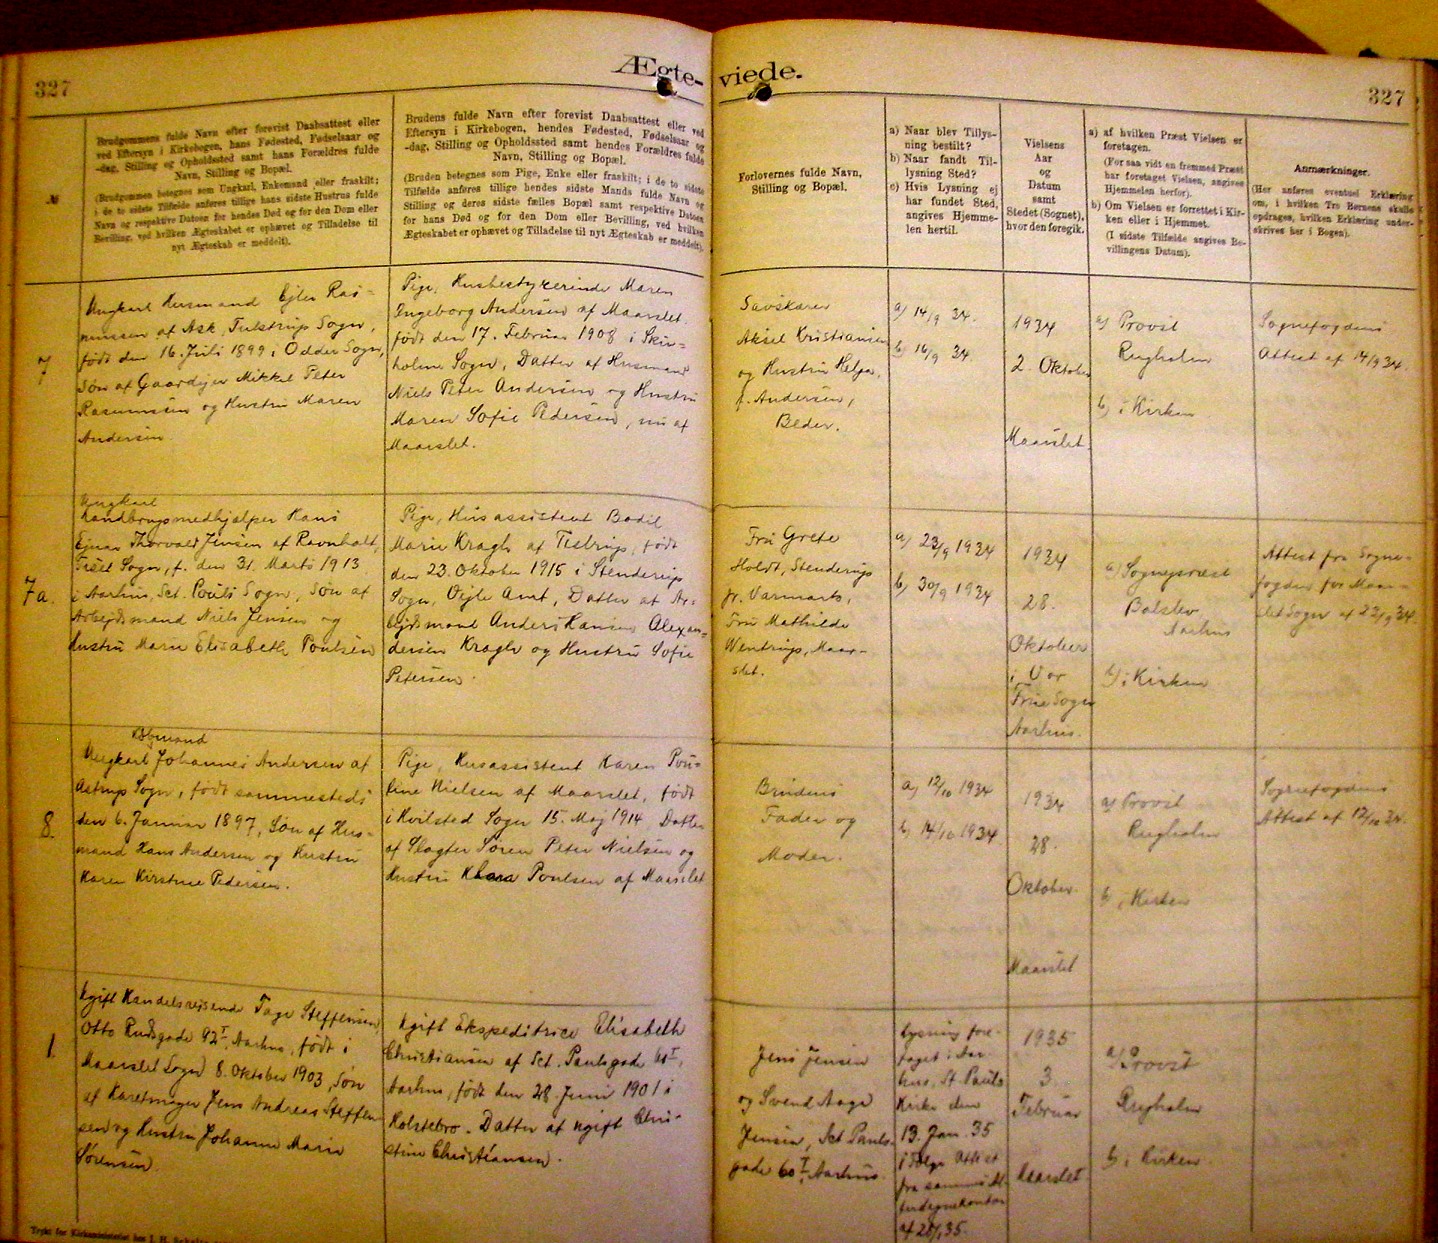 327
Ægte-
viede.
327
№
Brudgommens fulde Navn efter forevist Daabsattest eller
ved Eftersyn i Kirkebogen, hans Fødested, Fødselsaar og
-dag, Stilling og Opholdssted samt hans Forældres fulde
Navn, Stilling og Bopæl.
(Brudgommen betegnes som Ungkarl, Enkemand eller fraskilt;
i de to sidste Tilfælde anføres tillige hans sidste Hustrus fulde
Navn og respektive Datoen for hendes Død og for den Dom eller
Bevilling, ved hvilken Ægteskabet er ophævet og Tilladelse til
nyt Ægteskab er meddelt).
Brudens fulde Navn efter forevist Daabsattest eller ved
Eftersyn i Kirkebogen, hendes Fødested, Fødselsaar og
-dag, Stilling og Opholdssted samt hendes Forældres fulde
Navn, Stilling og Bopæl.
(Bruden betegnes som Pige, Enke eller fraskilt; i de to sidste
Tilfælde anføres tillige hendes sidste Mands fulde Navn og
Stilling og deres sidste fælles Bopæl samt respektive Datoen
for hans Død og for den Dom eller Bevilling, ved hvilken
Ægteskabet er ophævet og Tilladelse til nyt Ægteskab er meddelt).
Forlovernes fulde Navn,
Stilling og Bopæl.
a) Naar blev Tillys-
ning bestilt?
b) Naar fandt Til-
lysning Sted?
c) Hvis Lysning ej
har fundet Sted,
angives Hjemme-
len hertil.
Vielsens
Aar
og
Datum
samt
Stedet (Sognet),
hvor den foregik.
a) af hvilken Præst Vielsen er
foretagen.
(For saa vidt en fremmed Præst
har foretaget Vielsen, angives
Hjemmelen herfor).
b) Om Vielsen er forrettet i Kir-
ken eller i Hjemmet.
(I sidste Tilfælde angives Be-
villingens Datum).
Anmærkninger.
(Her anføres eventuel Erklæring
om, i hvilken Tro Børnene skulle
opdrages, hvilken Erklæring under-
skrives her i Bogen).
7
Ungkarl Husmand Ejler Ras-
mussen af Ask, Tulstrup Sogn,
født den 16. Juli 1899 i Odder Sogn,
Søn af Gaardejer Mikkel Peter
Rasmussen og Hustru Maren
Andersen.
Pige, Husbestyrerinde Maren
Ingeborg Andersen af Maarslet.
født den 17. Februar 1908 i Skiv-
holme Sogn, Datter af Husmand
Niels Peter Andersen og Hustru
Maren Sofie Pedersen, nu af
Maarslet.
Savskærer
Aksel Kristiansen
og Hustru Helga,
f. Andersen,
Beder.
a) 14/9 34.
b) 16/9 34
1934
2. Oktober
Maarslet
a) Provst
Rugholm
b) i Kirken
Sognefogdens
Attest af 14/9 34.
7a.
Ungkarl
Landbrugsmedhjælper Hans
Ejnar Thorvald Jensen af Ravnholt,
Tiset Sogn, f. den 31. Marts 1913
i Aarhus, Sct. Pouls Sogn, Søn af
Arbejdsmand Niels Jensen og
Hustru Marie Elisabeth Poulsen
Pige, Husassistent Bodil
Marie Kragh af Testrup, født
den 23. Oktober 1915 i Stenderup
Sogn, Vejle Amt, Datter af Ar-
bejdsmand Anders Hansen Alexan-
dersen Kragh og Hustru Sofie
Petersen.
Fru Grete
Holdt, Stenderup
pr. Varmark,
Fru Mathilde
Wentrup, Maar-
slet.
a) 23/9 1934
b) 30/9 1934
1934
28.
Oktober
i Vor
Frue Sogn
Aarhus.
a) Sognepræst
Balslev
Aarhus
b) i Kirken
Attest fra Sogne-
fogden for Maar-
slet Sogn af 23/9 34.
8.
Købmand
Ungkarl Johannes Andersen af
Astrup Sogn, født sammesteds
den 6. Januar 1897, Søn af Hus-
mand Hans Andersen og Hustru
Karen Kirstine Pedersen.
Pige, Husassistent Karen Pou-
line Nielsen af Maarslet, født
i Hvilsted Sogn 15. Maj 1914, Datter
af Slagter Søren Peter Nielsen og
Hustru Klara Poulsen af Maarslet
Brudens
Fader og
Moder.
a) 12/10 1934
b) 14/10 1934
1934
28.
Oktober.
Maarslet
a) Provst
Rugholm
b) i Kirken
Sognefogdens
Attest af 12/10 34.
1.
Ugift Handelsrejsende Tage Steffensen
Otto Rudsgade 92 I, Aarhus, født i
Maarslet Sogn 8. Oktober 1903, Søn
af Karetmager Jens Andreas Steffen-
sen og Hustru Johanne Marie
Sørensen.
Ugift Ekspeditrice Elisabeth
Christiansen af Sct. Paulsgade 60 I,
Aarhus, født den 28. Juni 1901 i
Holstebro. Datter af ugift Chri-
stine Christiansen.
Jens Jensen
og Svend Aage
Jensen, Sct. Pauls-
gade 60 I, Aarhus.
Lysning fore-
taget i Aar
hus, St. Pauls
Kirke den
13. Jan. 35
ifølge Attest
fra samme
af 28/1 35.
1935
3.
Februar
Maarslet
a) Provst
Rugholm
b) i Kirken.
Trykt for Kirkeministeriet hos J. H. Schultz